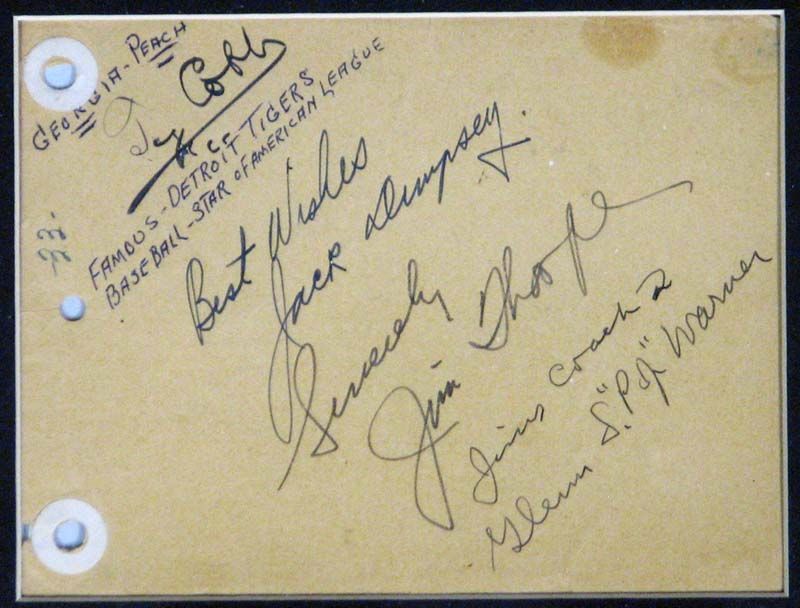 GEORGIA-PEACH
Ty Cobb
FAMOUS-DETROIT TIGERS
BASEBALL-STAR OF AMERICAN LEAGUE
33.
Best Wishes
Jack Dempsey.
Sincerely
Jim Thorpe
Jim's Coach
Glenn S. "Pop" Warner